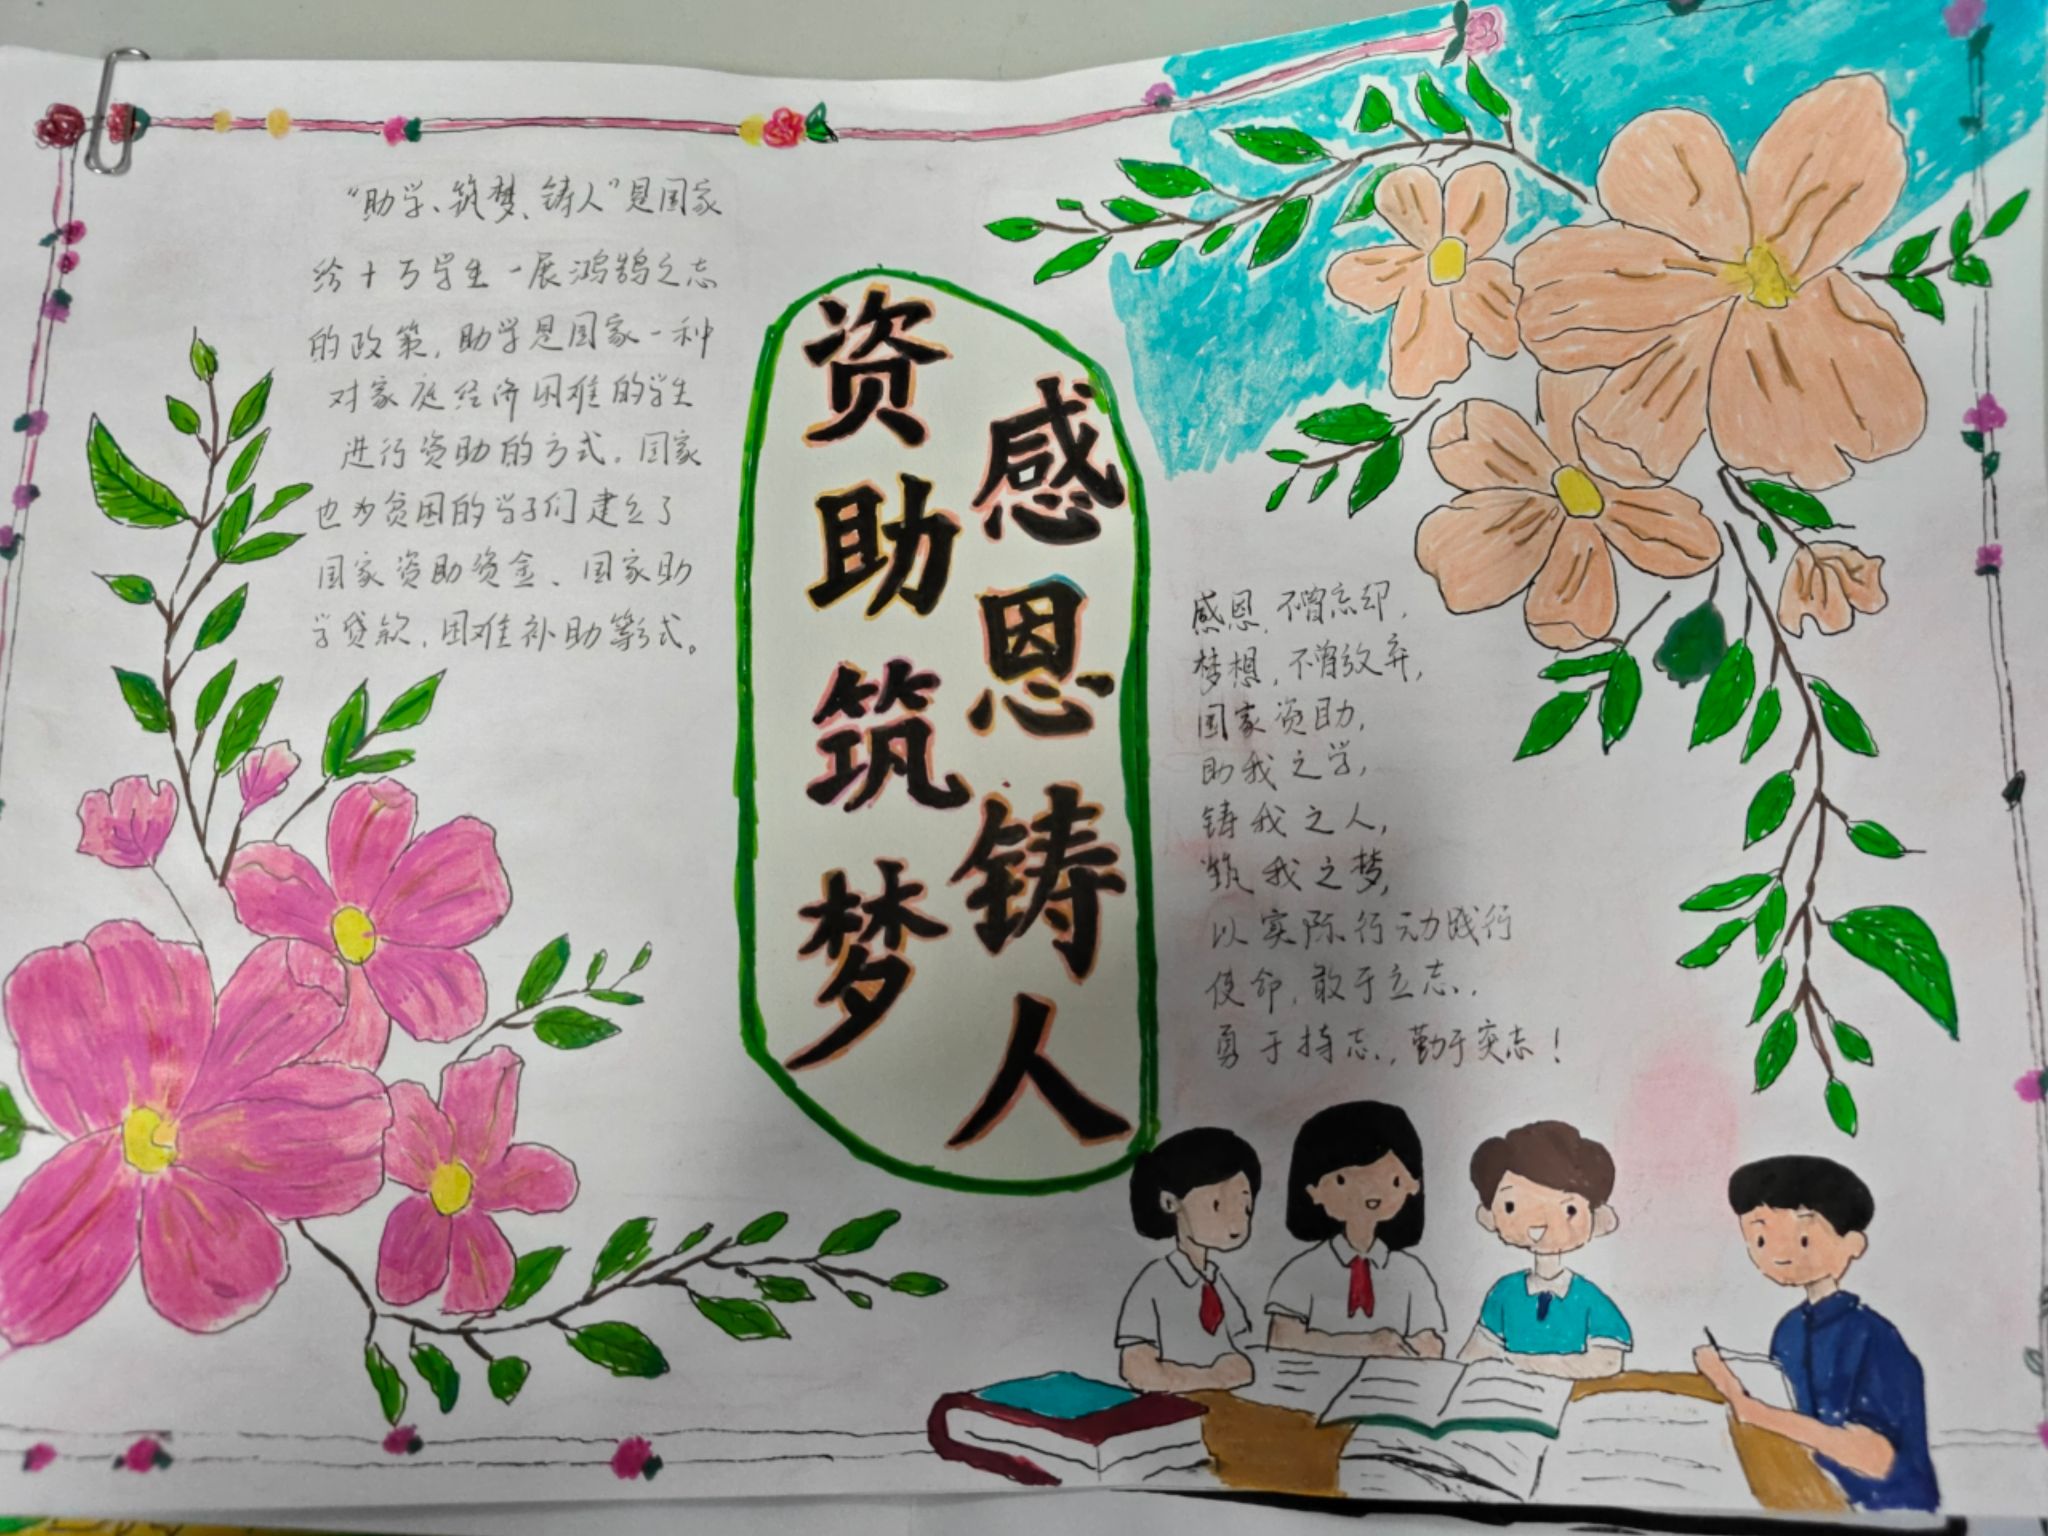 “助学、筑梦、铸人”是国家
给十万学生一展鸿鹄之志
的政策，助学是国家一种
对家庭经济困难的学生
进行资助的方式。国家
也为贫困的学子们建立了
国家资助资金、国家助
学贷款，困难补助等形式。
资助筑梦
感恩铸人
感恩，不曾忘却，
梦想，不曾放弃，
国家资助，
助我之学，
铸我之人，
筑我之梦，
以实际行动践行
使命，敢于立志，
勇于持志，勤于奕志！